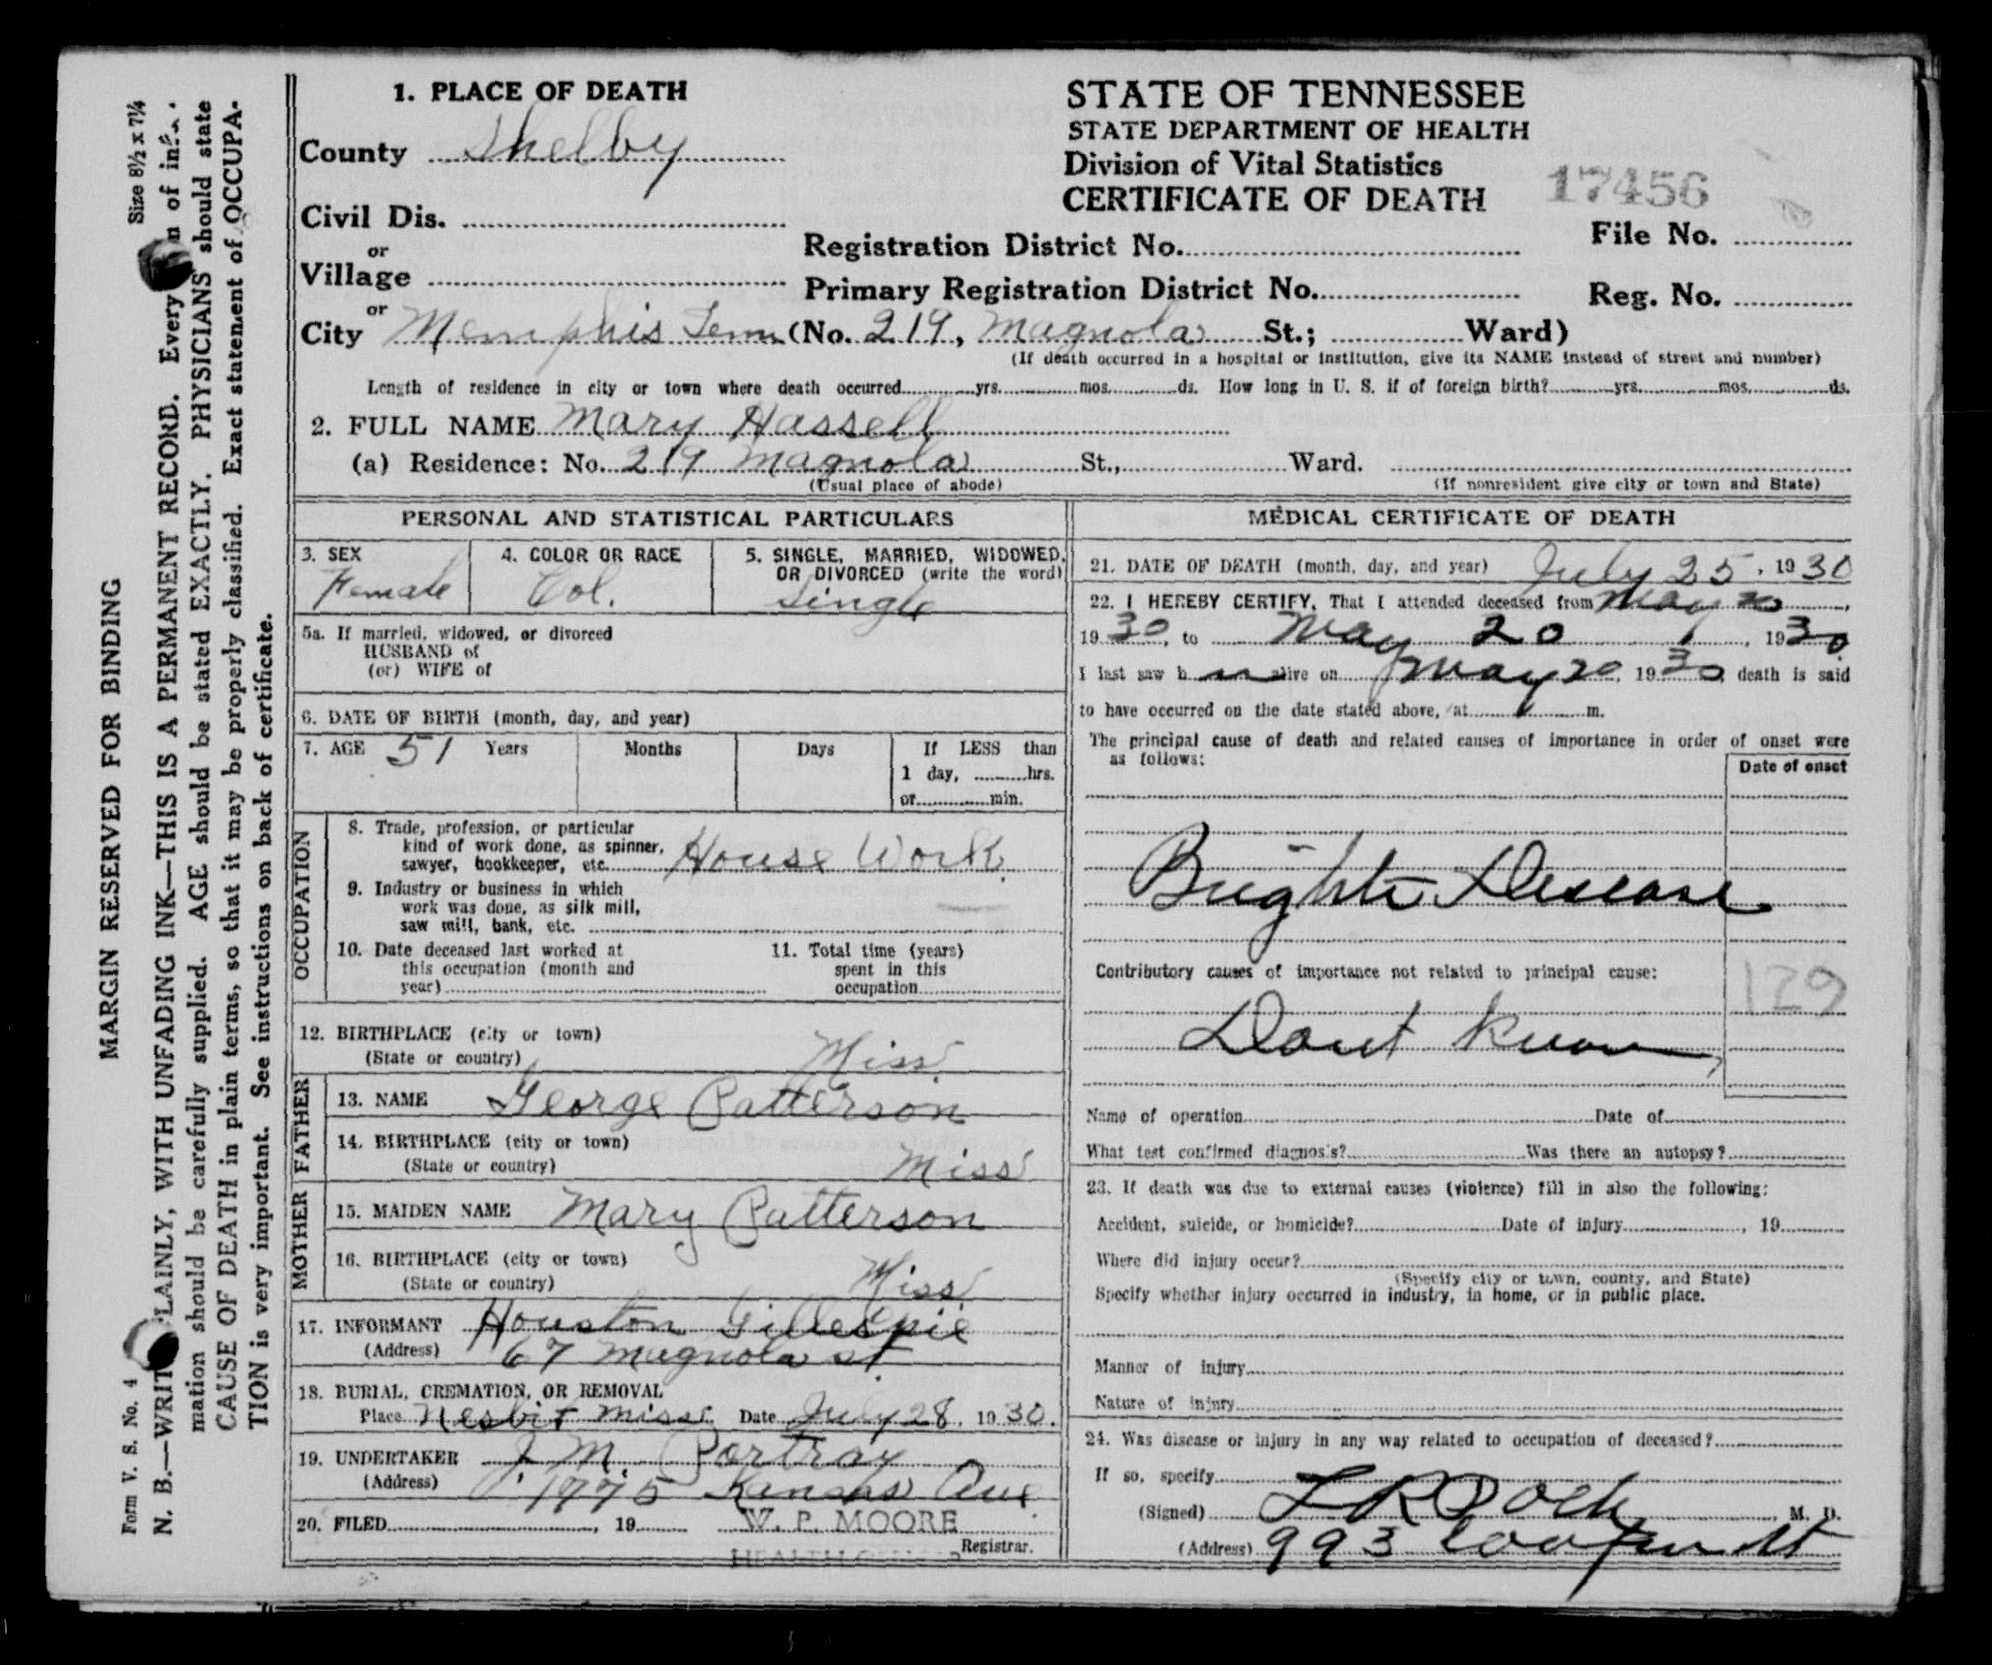 Size 8½ x 7¼
MARGIN RESERVED FOR BINDING
N. B.—WRIT PLAINLY, WITH UNFADING INK—THIS IS A PERMANENT RECORD. Every of
mation should be carefully supplied. AGE should be stated EXACTLY. PHYSICIANS should state
CAUSE OF DEATH in plain terms, so that it may be properly classified. Exact statement of OCCUPA-
TION is very important. See instructions on back of certificate.
Form V. S. No. 4
1. PLACE OF DEATH
County Shelby
Civil Dis.
or
Village
or
City Memphis Tenn (No. 219, Magnola St.; Ward)
STATE OF TENNESSEE
STATE DEPARTMENT OF HEALTH
Division of Vital Statistics
CERTIFICATE OF DEATH
17456
File No.
Registration District No.
Primary Registration District No.
Reg. No.
(If death occurred in a hospital or institution, give its NAME instead of street and number)
Length of residence in city or town where death occurred yrs. mos. ds. How long in U. S. if of foreign birth? yrs. mos. ds.
2. FULL NAME Mary Hassell
(a) Residence: No. 219 Magnola St., Ward.
(Usual place of abode) (If nonresident give city or town and State)
PERSONAL AND STATISTICAL PARTICULARS
3. SEX
Female
4. COLOR OR RACE
Col.
5. SINGLE, MARRIED, WIDOWED,
OR DIVORCED (write the word)
Single
5a. If married, widowed, or divorced
HUSBAND of
(or) WIFE of
6. DATE OF BIRTH (month, day, and year)
7. AGE 51 Years Months Days If LESS than
1 day, hrs.
or min.
OCCUPATION
8. Trade, profession, or particular
kind of work done, as spinner,
sawyer, bookkeeper, etc. House Work
9. Industry or business in which
work was done, as silk mill,
saw mill, bank, etc.
10. Date deceased last worked at
this occupation (month and
year)
11. Total time (years)
spent in this
occupation
12. BIRTHPLACE (city or town)
(State or country) Miss
FATHER
13. NAME George Patterson
14. BIRTHPLACE (city or town)
(State or country) Miss
MOTHER
15. MAIDEN NAME Mary Patterson
16. BIRTHPLACE (city or town)
(State or country) Miss
17. INFORMANT Houston Gillespie
(Address) 67 Magnola st
18. BURIAL, CREMATION, OR REMOVAL
Place Nesbit Miss Date July 28, 1930.
19. UNDERTAKER J. M. Portray
(Address) 1775 Kansas Ave
20. FILED , 19 W. P. MOORE
Registrar.
MEDICAL CERTIFICATE OF DEATH
21. DATE OF DEATH (month, day, and year) July 25, 1930
22. I HEREBY CERTIFY, That I attended deceased from May 20,
1930, to May 20, 1930
I last saw h alive on May 20, 1930 death is said
to have occurred on the date stated above, at m.
The principal cause of death and related causes of importance in order of onset were
as follows:
Date of onset
Brights Disease
Contributory causes of importance not related to principal cause:
129
Dont Know
Name of operation Date of
What test confirmed diagnosis? Was there an autopsy?
23. If death was due to external causes (violence) fill in also the following:
Accident, suicide, or homicide? Date of injury , 19
Where did injury occur?
(Specify city or town, county, and State)
Specify whether injury occurred in industry, in home, or in public place.
Manner of injury
Nature of injury
24. Was disease or injury in any way related to occupation of deceased?
If so, specify
(Signed) M. D.
(Address) 993 St